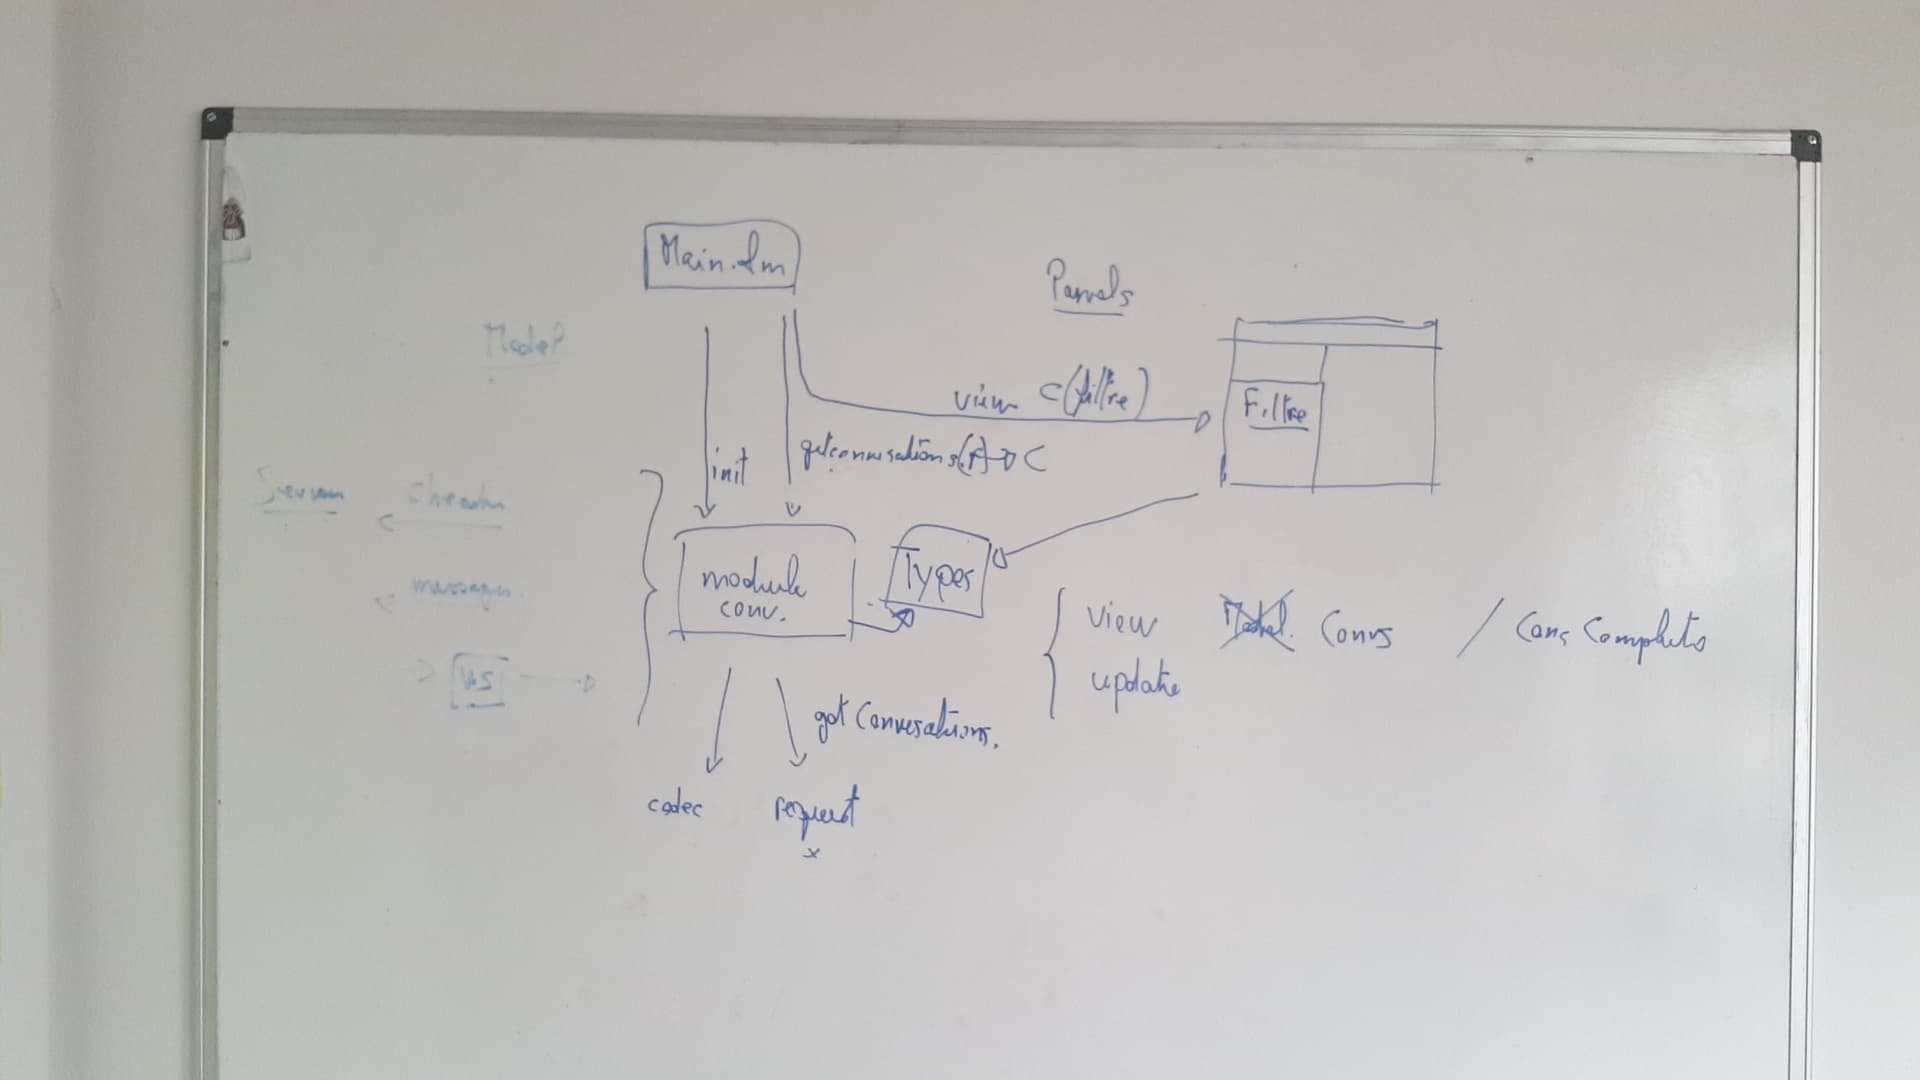 Main.elm
Panels
Model
view C(filtre)
Filtre
init
getconversations(f) → C
Server
messages.
module
conv.
Types
View
Model. Convs / Convs Completes
update
WS
got Conversations.
codec
request
x